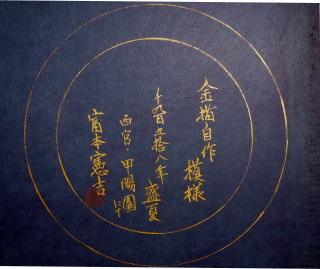 金描自作
模様
千九百五拾八年盛夏
西宮・甲陽園
富本憲吉